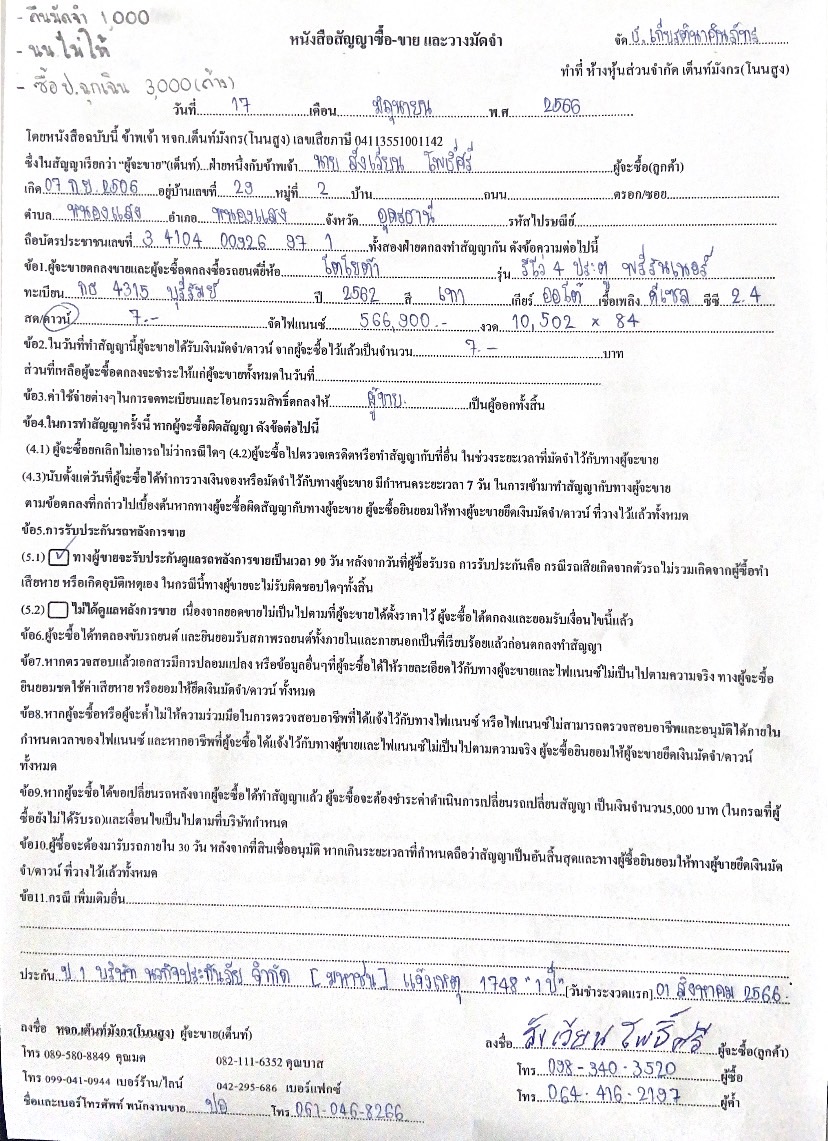 - คืนมัดจำ 1,000
- นน.ไม่ให้
- ซื้อ ป.ฉุกเฉิน 3,000 (ค้าง)
หนังสือสัญญาซื้อ-ขาย และวางมัดจำ
จัด บ. เกียรตินาคินภัทร
ทำที่ ห้างหุ้นส่วนจำกัด เต็นท์มังกร(โนนสูง)
วันที่ 17 เดือน มิถุนายน พ.ศ 2566
โดยหนังสือฉบับนี้ ข้าพเจ้า หจก.เต็นท์มังกร(โนนสูง) เลขเสียภาษี 04113551001142
ซึ่งในสัญญาเรียกว่า "ผู้จะขาย"(เต็นท์)...ฝ่ายหนึ่งกับข้าพเจ้า นาย สังเวียน โพธิ์ศรี ผู้จะซื้อ(ลูกค้า)
เกิด 07 ก.ย. 2506 อยู่บ้านเลขที่ 29 หมู่ที่ 2 บ้าน ถนน ตรอก/ซอย
ตำบล หนองแสง อำเภอ หนองแสง จังหวัด อุดรธานี รหัสไปรษณีย์
ถือบัตรประชาชนเลขที่ 3 4104 00926 97 1 ทั้งสองฝ่ายตกลงทำสัญญากัน ดังข้อความต่อไปนี้
ข้อ1.ผู้จะขายตกลงขายและผู้จะซื้อตกลงซื้อรถยนต์ยี่ห้อ โตโยต้า รุ่น รีโว่ 4 ประตู พรีรันเนอร์
ทะเบียน กธ 4315 บุรีรัมย์ ปี 2562 สี เทา เกียร์ ออโต้ เชื้อเพลิง ดีเซล ซีซี 2.4
สด/ดาวน์ 7.- จัดไฟแนนซ์ 566,900.- งวด 10,502 x 84
ข้อ2.ในวันที่ทำสัญญานี้ผู้จะขายได้รับเงินมัดจำ/ดาวน์ จากผู้จะซื้อไว้แล้วเป็นจำนวน 7.- บาท
ส่วนที่เหลือผู้จะซื้อตกลงจะชำระให้แก่ผู้จะขายทั้งหมดในวันที่
ข้อ3.ค่าใช้จ่ายต่างๆในการจดทะเบียนและโอนกรรมสิทธิ์ตกลงให้ ผู้ขาย เป็นผู้ออกทั้งสิ้น
ข้อ4.ในการทำสัญญาครั้งนี้ หากผู้จะซื้อผิดสัญญา ดังข้อต่อไปนี้
(4.1) ผู้จะซื้อยกเลิกไม่เอารถไม่ว่ากรณีใดๆ (4.2)ผู้จะซื้อไปตรวจเครดิตหรือทำสัญญากับที่อื่น ในช่วงระยะเวลาที่มัดจำไว้กับทางผู้จะขาย
(4.3)นับตั้งแต่วันที่ผู้จะซื้อได้ทำการวางเงินจองหรือมัดจำไว้กับทางผู้จะขาย มีกำหนดระยะเวลา 7 วัน ในการเข้ามาทำสัญญากับทางผู้จะขาย
ตามข้อตกลงที่กล่าวไปเบื้องต้นหากทางผู้จะซื้อผิดสัญญากับทางผู้จะขาย ผู้จะซื้อยินยอมให้ทางผู้จะขายยึดเงินมัดจำ/ดาวน์ ที่วางไว้แล้วทั้งหมด
ข้อ5.การรับประกันรถหลังการขาย
(5.1) ✓ ทางผู้ขายจะรับประกันดูแลรถหลังการขายเป็นเวลา 90 วัน หลังจากวันที่ผู้ซื้อรับรถ การรับประกันคือ กรณีรถเสียเกิดจากตัวรถไม่รวมเกิดจากผู้ซื้อทำ
เสียหาย หรือเกิดอุบัติเหตุเอง ในกรณีนี้ทางผู้ขายจะไม่รับผิดชอบใดๆทั้งสิ้น
(5.2) ไม่ได้ดูแลหลังการขาย เนื่องจากยอดขายไม่เป็นไปตามที่ผู้จะขายได้ตั้งราคาไว้ ผู้จะซื้อได้ตกลงและยอมรับเงื่อนไขนี้แล้ว
ข้อ6.ผู้จะซื้อได้ทดลองขับรถยนต์ และยินยอมรับสภาพรถยนต์ทั้งภายในและภายนอกเป็นที่เรียบร้อยแล้วก่อนตกลงทำสัญญา
ข้อ7.หากตรวจสอบแล้วเอกสารมีการปลอมแปลง หรือข้อมูลอื่นๆที่ผู้จะซื้อได้ให้รายละเอียดไว้กับทางผู้จะขายและไฟแนนซ์ไม่เป็นไปตามความจริง ทางผู้จะซื้อ
ยินยอมชดใช้ค่าเสียหาย หรือยอมให้ยึดเงินมัดจำ/ดาวน์ ทั้งหมด
ข้อ8.หากผู้จะซื้อหรือผู้จะค้ำไม่ให้ความร่วมมือในการตรวจสอบอาชีพที่ได้แจ้งไว้กับทางไฟแนนซ์ หรือไฟแนนซ์ไม่สามารถตรวจสอบอาชีพและอนุมัติได้ภายใน
กำหนดเวลาของไฟแนนซ์ และหากอาชีพที่ผู้จะซื้อได้แจ้งไว้กับทางผู้ขายและไฟแนนซ์ไม่เป็นไปตามความจริง ผู้จะซื้อยินยอมให้ผู้จะขายยึดเงินมัดจำ/ดาวน์
ทั้งหมด
ข้อ9.หากผู้จะซื้อได้ขอเปลี่ยนรถหลังจากผู้จะซื้อได้ทำสัญญาแล้ว ผู้จะซื้อจะต้องชำระค่าดำเนินการเปลี่ยนรถเปลี่ยนสัญญา เป็นเงินจำนวน5,000 บาท (ในกรณีที่ผู้
ซื้อยังไม่ได้รับรถ)และเงื่อนไขเป็นไปตามที่บริษัทกำหนด
ข้อ10.ผู้ซื้อจะต้องมารับรถภายใน 30 วัน หลังจากที่สินเชื่ออนุมัติ หากเกินระยะเวลาที่กำหนดถือว่าสัญญาเป็นอันสิ้นสุดและทางผู้ซื้อยินยอมให้ทางผู้ขายยึดเงินมัด
จำ/ดาวน์ ที่วางไว้แล้วทั้งหมด
ข้อ11.กรณี เพิ่มเติมอื่น
ประกัน ป.1 บริษัท นวกิจประกันภัย จำกัด [มหาชน] แจ้งเหตุ 1748 "1 ปี" [วันชำระงวดแรก] 01 สิงหาคม 2566.
ลงชื่อ หจก.เต็นท์มังกร(โนนสูง) ผู้จะขาย(เต็นท์)
ลงชื่อ สังเวียน โพธิ์ศรี ผู้จะซื้อ(ลูกค้า)
โทร 089-580-8849 คุณมด 082-111-6352 คุณบาส
โทร 098-340-3520 ผู้ซื้อ
โทร 099-041-0944 เบอร์ร้าน/ไลน์ 042-295-686 เบอร์แฟกซ์
โทร 064-416-2197 ผู้ค้ำ
ชื่อและเบอร์โทรศัพท์ พนักงานขาย ปอ โทร 061-046-8266